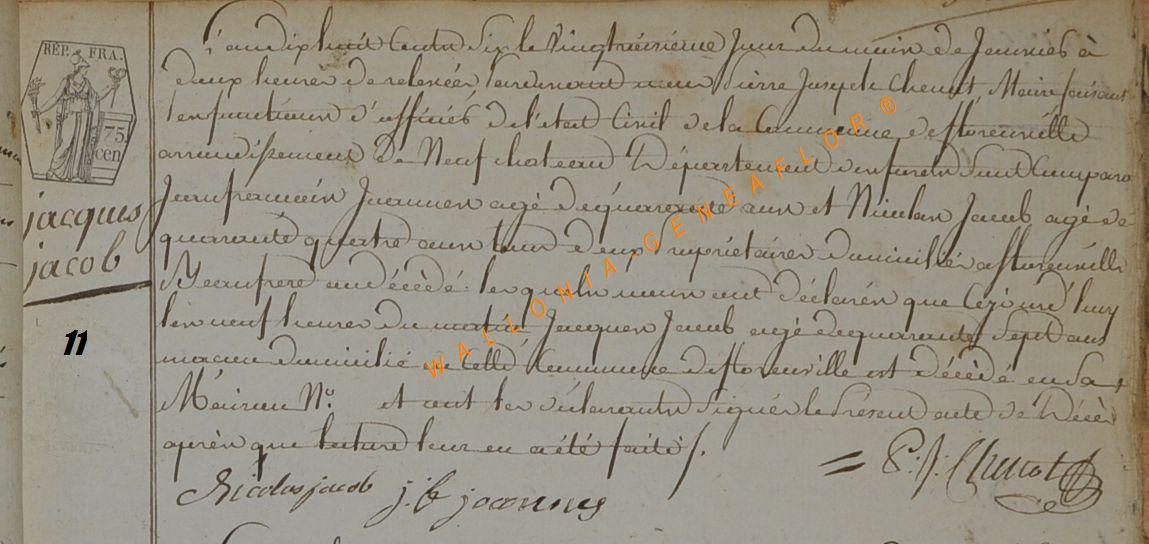 RÉP. FRA.
75
cen
jacques
jacob
11
L'an dix huit Cents Six le Vingt jour du mois de Janvier à
deux heures de relevée, pardevant nous Pierre Joseph Chenot, Maire faisant
les fonctions d'officiés de l'état Civil de la Commune de florenville
arrondissement De Neufchateau Département des forets Sont Comparu
Jean francois agé de quarante ans et Nicolas Jacob agé de
quarante quatre ans tous deux propriétaires domiciliés a florenville
Beaufrere au décédé lesquels nous ont déclarés que Cejourd'huy
les neuf heures du matin Jacques Jacob agé de quarante Sept ans
domicilié en cette Commune de florenville est décédé en Sa
Maison N.º et ont les déclarants Signés le Présent acte de Décès
après que lecture leur en a été faite ./.
P. J. Chenot
Nicolas jacob
WALLONIA-GENEAFLOR®